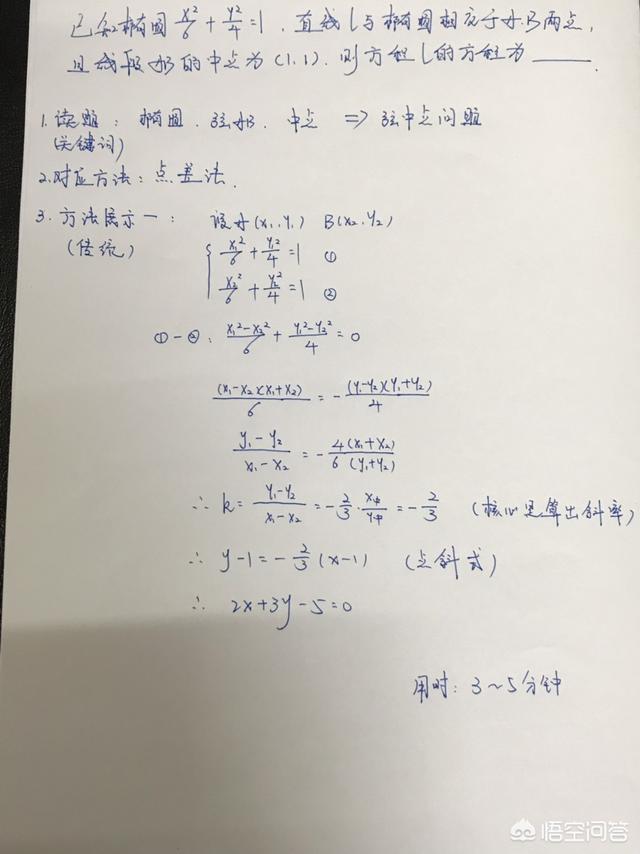 已知椭圆 x²/6 + y²/4 = 1, 直线 l 与椭圆相交于A,B两点,
且线段AB的中点为(1,1). 则方程 l 的方程为 ____.
1. 读题: 椭圆. 弦AB. 中点 ⇒ 弦中点问题
(关键词)
2. 对应方法: 点差法.
3. 方法展示一: 设A(x₁,y₁) B(x₂,y₂)
(传统)
{ x₁²/6 + y₁²/4 = 1 ①
x₂²/6 + y₂²/4 = 1 ②
①-②: (x₁²-x₂²)/6 + (y₁²-y₂²)/4 = 0
(x₁-x₂)(x₁+x₂)/6 = -(y₁-y₂)(y₁+y₂)/4
(y₁-y₂)/(x₁-x₂) = -4(x₁+x₂)/6(y₁+y₂)
∴ k = (y₁-y₂)/(x₁-x₂) = -2/3 · x中/y中 = -2/3 (核心是算出斜率)
∴ y-1 = -2/3(x-1) (点斜式)
∴ 2x+3y-5=0
用时: 3~5分钟
悟空问答